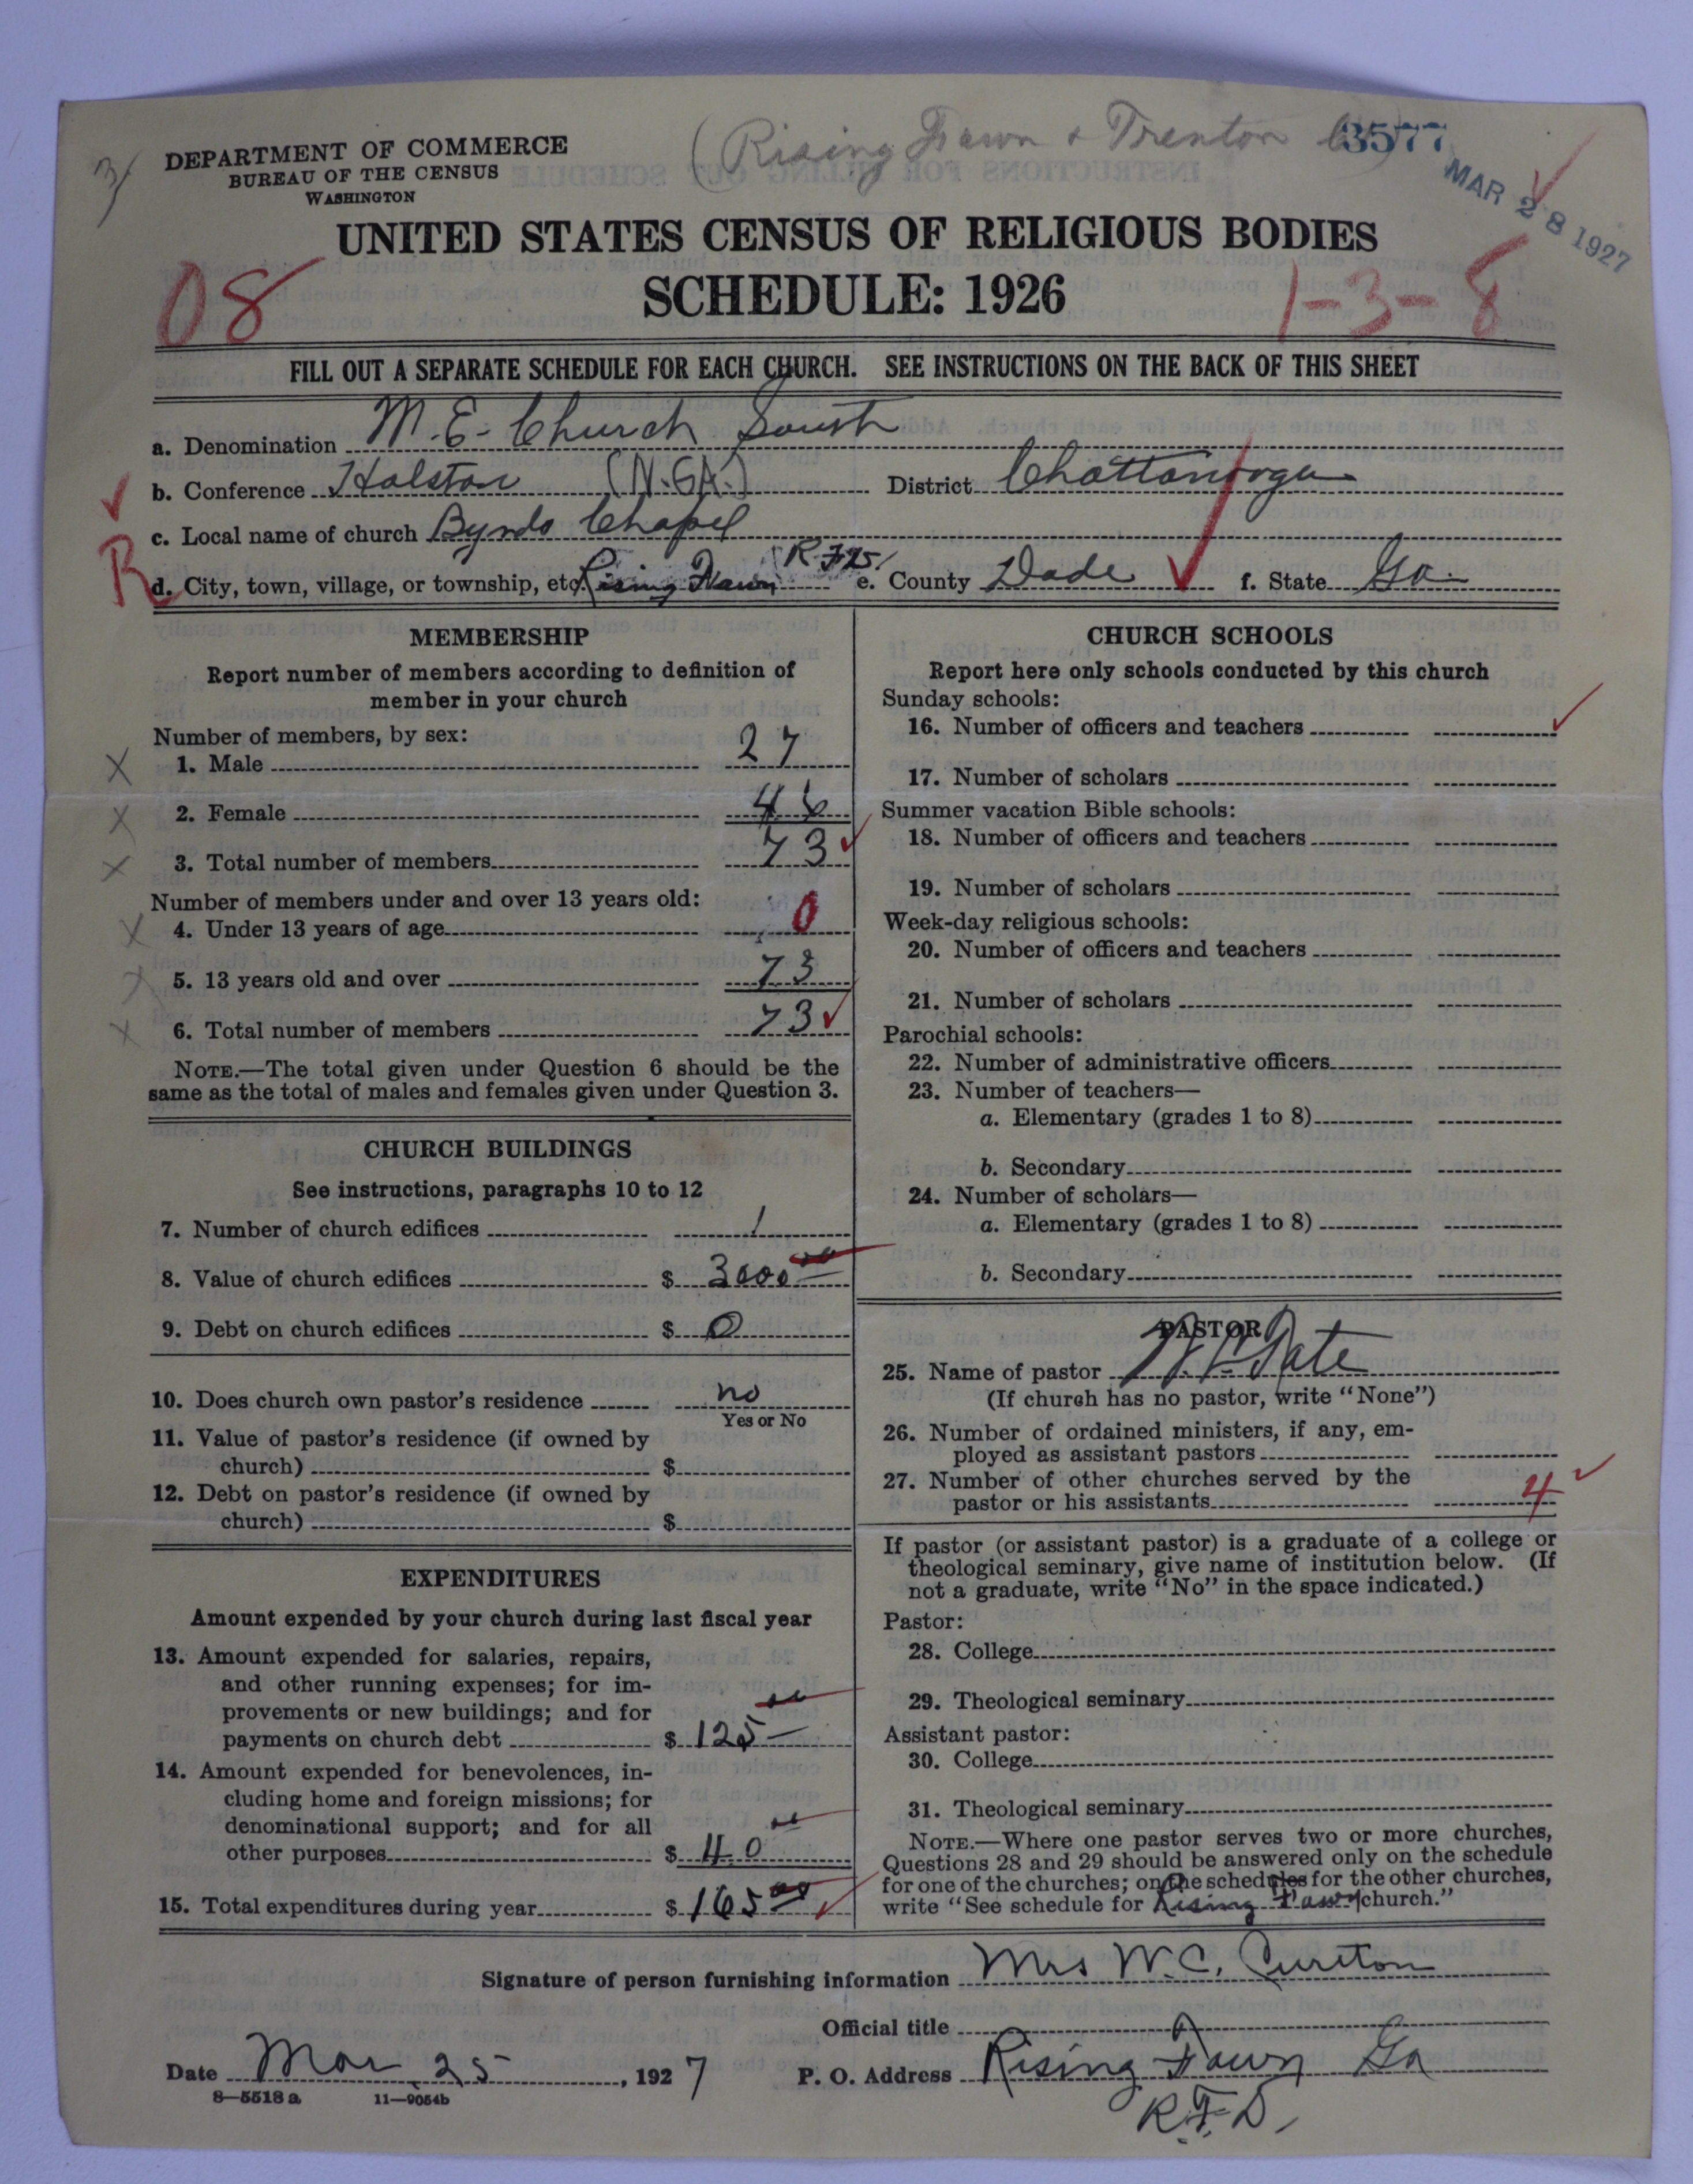 (Rising Fawn & Trenton
3577
DEPARTMENT OF COMMERCE
BUREAU OF THE CENSUS
WASHINGTON
MAR 28 1927
UNITED STATES CENSUS OF RELIGIOUS BODIES
SCHEDULE: 1926
08
1-3-8
FILL OUT A SEPARATE SCHEDULE FOR EACH CHURCH. SEE INSTRUCTIONS ON THE BACK OF THIS SHEET
a. Denomination M.E. Church South
b. Conference Holston (N.GA.) District Chattanooga
c. Local name of church Byrds Chapel
R
d. City, town, village, or township, etc. Rising Fawn e. County Dade f. State Ga.
MEMBERSHIP
Report number of members according to definition of
member in your church
Number of members, by sex:
1. Male 27
2. Female 46
3. Total number of members 73
Number of members under and over 13 years old:
4. Under 13 years of age 0
5. 13 years old and over 73
6. Total number of members 73
NOTE.—The total given under Question 6 should be the
same as the total of males and females given under Question 3.
CHURCH BUILDINGS
See instructions, paragraphs 10 to 12
7. Number of church edifices 1
8. Value of church edifices $ 3000 00
9. Debt on church edifices $ 0
10. Does church own pastor's residence no
Yes or No
11. Value of pastor's residence (if owned by
church) $
12. Debt on pastor's residence (if owned by
church) $
EXPENDITURES
Amount expended by your church during last fiscal year
13. Amount expended for salaries, repairs,
and other running expenses; for im-
provements or new buildings; and for
payments on church debt $ 125 00
14. Amount expended for benevolences, in-
cluding home and foreign missions; for
denominational support; and for all
other purposes $ 40 00
15. Total expenditures during year $ 165 00
CHURCH SCHOOLS
Report here only schools conducted by this church
Sunday schools:
16. Number of officers and teachers
17. Number of scholars
Summer vacation Bible schools:
18. Number of officers and teachers
19. Number of scholars
Week-day religious schools:
20. Number of officers and teachers
21. Number of scholars
Parochial schools:
22. Number of administrative officers
23. Number of teachers—
a. Elementary (grades 1 to 8)
b. Secondary
24. Number of scholars—
a. Elementary (grades 1 to 8)
b. Secondary
PASTOR
25. Name of pastor Pate
(If church has no pastor, write "None")
26. Number of ordained ministers, if any, em-
ployed as assistant pastors
27. Number of other churches served by the
pastor or his assistants 4
If pastor (or assistant pastor) is a graduate of a college or
theological seminary, give name of institution below. (If
not a graduate, write "No" in the space indicated.)
Pastor:
28. College
29. Theological seminary
Assistant pastor:
30. College
31. Theological seminary
NOTE.—Where one pastor serves two or more churches,
Questions 28 and 29 should be answered only on the schedule
for one of the churches; on the schedules for the other churches,
write "See schedule for Rising Fawn church."
Signature of person furnishing information Mrs W.C. Cureton
Official title
Date Mar 25, 1927 P. O. Address Rising Fawn Ga
8—5518 a 11—9054b
R.F.D.